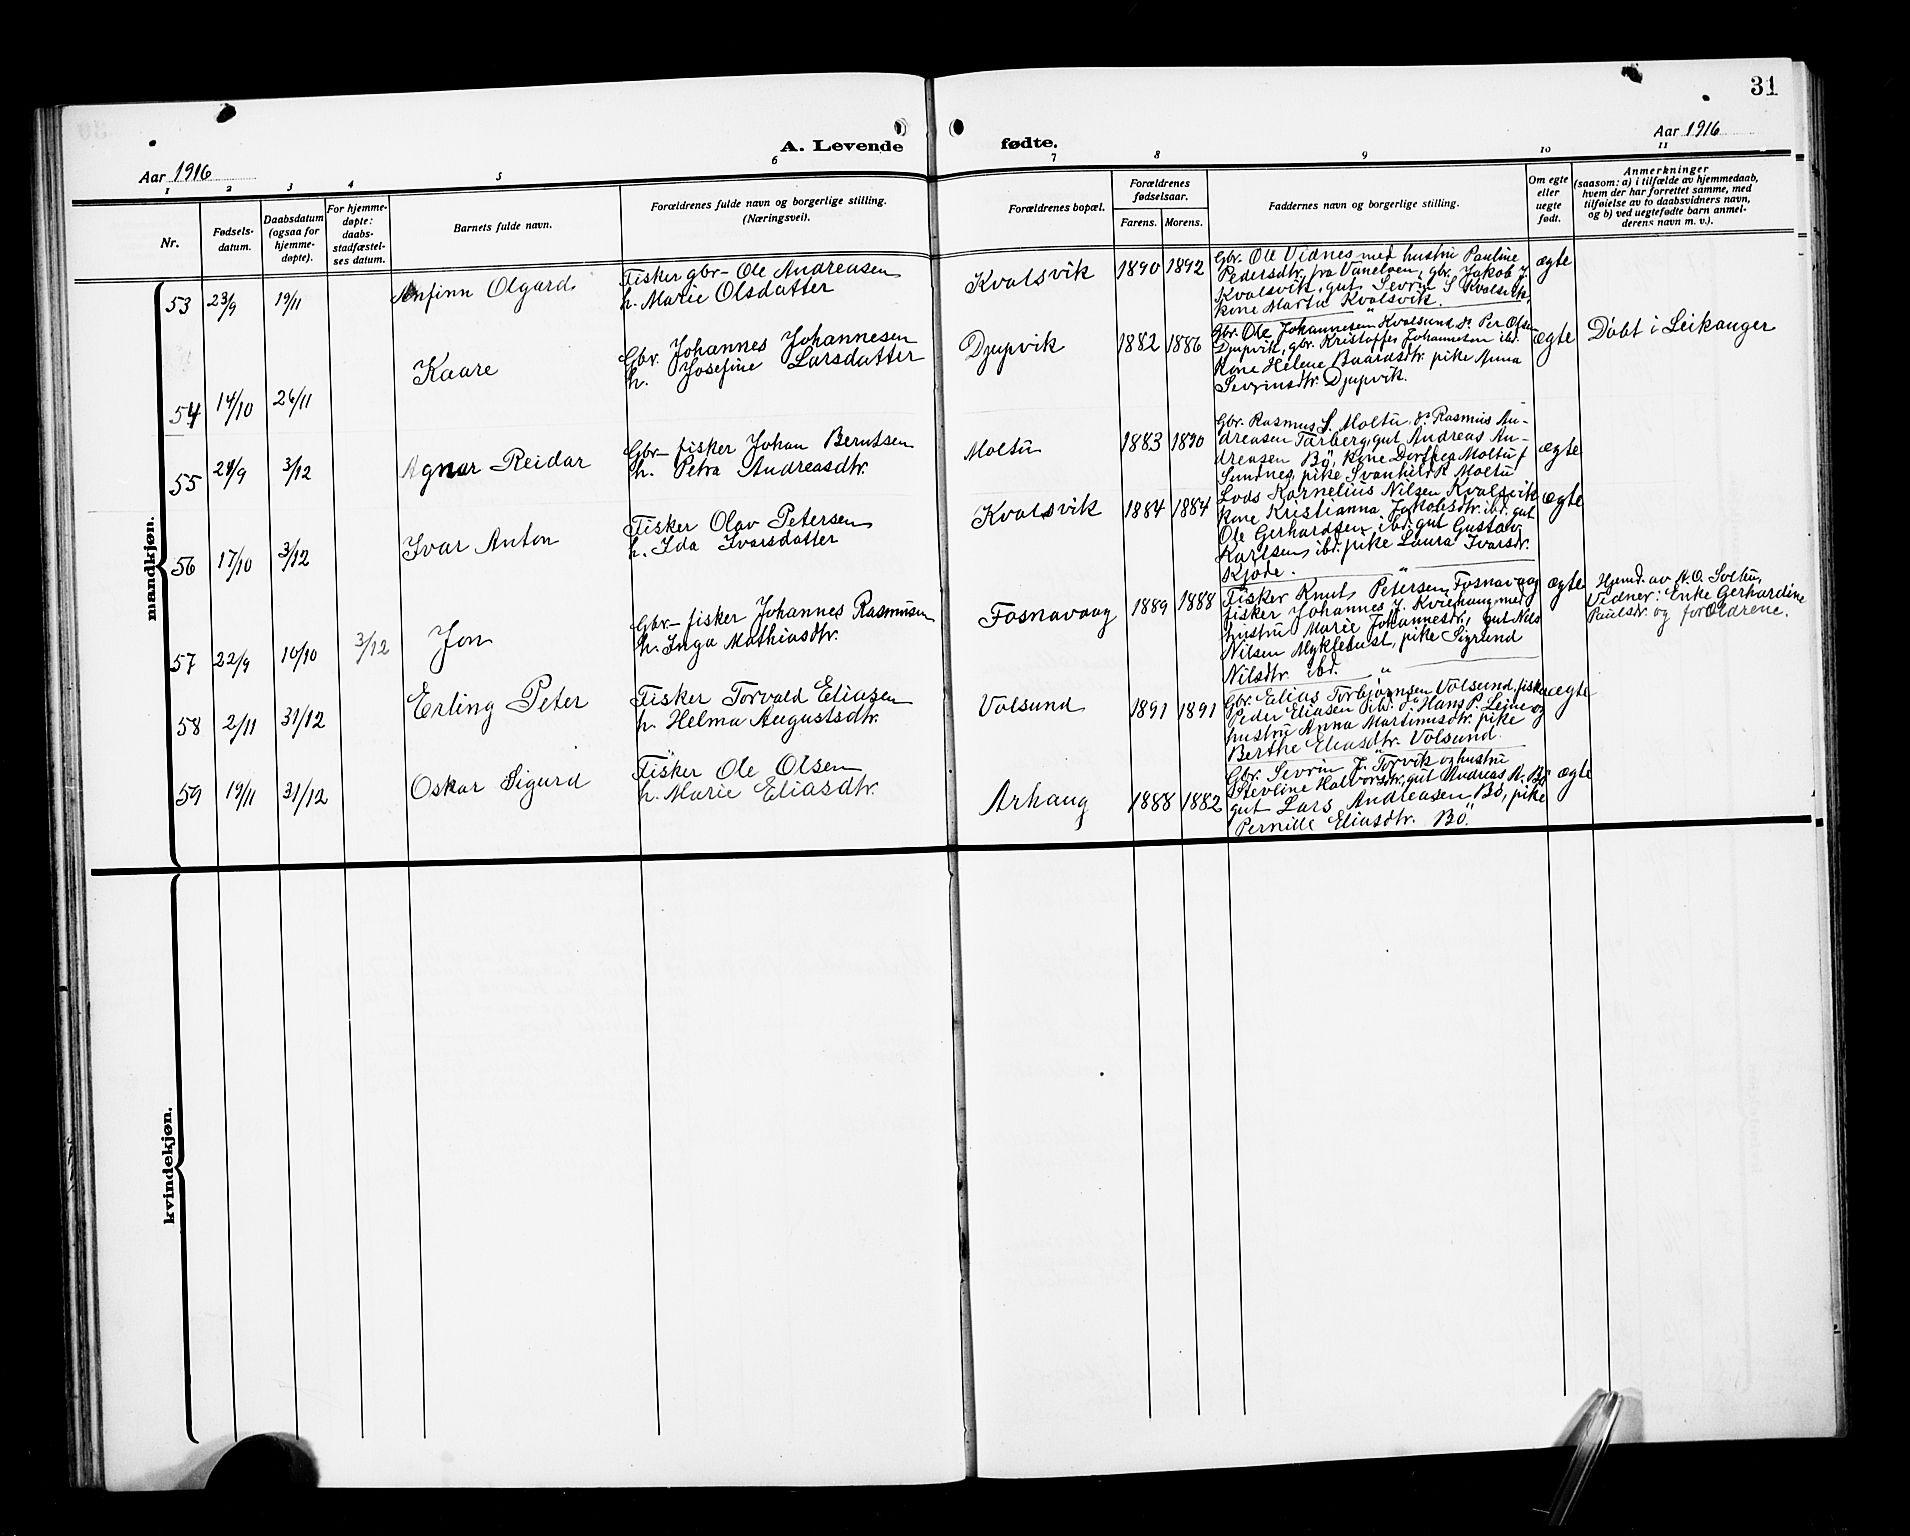 31
Aar 1916
A. Levende
fødte.
Aar 1916
1 2 3 4 5 6 7 8 9 10 11
Nr.
Fødsels-
datum.
Daabsdatum
(ogsaa for
hjemme-
døpte).
For hjemme-
døpte:
daabs-
stadfæstel-
ses datum.
Barnets fulde navn.
Forældrenes fulde navn og borgerlige stilling.
(Næringsvei).
Forældrenes bopæl.
Forældrenes
fødselsaar.
Farens. Morens.
Faddernes navn og borgerlige stilling.
Om egte
eller
uegte
født.
Anmerkninger
(saasom: a) i tilfælde av hjemmedaab,
hvem der har forrettet samme, med
tilføielse av to daabsvidners navn,
og b) ved uegtefødte barn anmel-
derens navn m. v.).
mandkjøn.
53 23/9 19/11
Anfinn Olgard
Fisker gbr- Ole Andreasen
h. Marie Olsdatter
Kvalsvik
1890 1892
Gbr. Ole Vidnes med hustru Pauline
Pedersdtr. fra Vanelven, gbr. Jakob J.
Kvalsvik, gut Sevrin S Kvalsvik,
kone Marta Kvalsvik.
ægte
54 14/10 26/11
Kaare
Gbr. Johannes Johannesen
h. Josefine Larsdatter
Djupvik
1882 1886
Gbr. Ole Johannesen Kvalsund, do Per Olsen
Djupvik, gbr. Kristoffer Johannesen ibd.
kone Helene Baardsdtr. pike Anna
Sevrinsdtr. Djupvik.
ægte
Döbt i Leikanger
55 29/9 3/12
Agnar Reidar
Gbr- fisker Johan Berntsen
h. Petra Andreasdtr.
Moltu
1883 1890
Gbr. Rasmus S. Moltu, do Rasmus An-
dreasen Tarberg, gut Andreas An-
dreasen Bö, kone Dorthea Moltu
Sundnes, pike Svanhild R Moltu
ægte
56 17/10 3/12
Ivar Anton
Fisker Olav Petersen
h. Ida Ivarsdatter
Kvalsvik
1884 1884
Lods Kornelius Nilsen Kvalsvik
kone Kristianna Jakobsdtr. ibd. gut
Ole Gerhardsen ibd. gut Gustav
Karlsen ibd. pike Laura Ivarsdtr.
Kjöde.
ægte
57 22/9 10/10 3/12
Jon
Gbr- fisker Johannes Rasmusen
h. Inga Mathiasdtr.
Fosnavaag
1889 1888
Fisker Knut Petersen Fosnavaag
fisker Johannes J. Kviehaug med
hustru Marie Johannesdtr., gut Nils
Nilsen Myklebust, pike Sigrund
Nilsdtr. ibd.
ægte
Hjemd. av A. O. Soltu,
Vidner: Enke Gerhardine
Paulsdtr og forældrene.
58 2/11 31/12
Erling Peter
Fisker Torvald Eliasen
h. Helma Augustsdtr.
Volsund
1891 1891
Gbr. Elias Torbjørnsen Volsund, fisker
Peder Eliasen ibd. do Hans P. Leine og
hustru Anna Martinusdtr. pike
Berthe Eliasdtr. Volsund.
ægte
59 19/11 31/12
Oskar Sigurd
Fisker Ole Olsen
h. Marie Eliasdtr.
Arhaug
1888 1882
Gbr. Sevrin J. Torvik og hustru
Stevline Halvorsdtr, gut Andreas A. Bö
gut Lars Andreasen Bö, pike
Pernille Eliasdtr. Bö.
ægte
kvindekjøn.